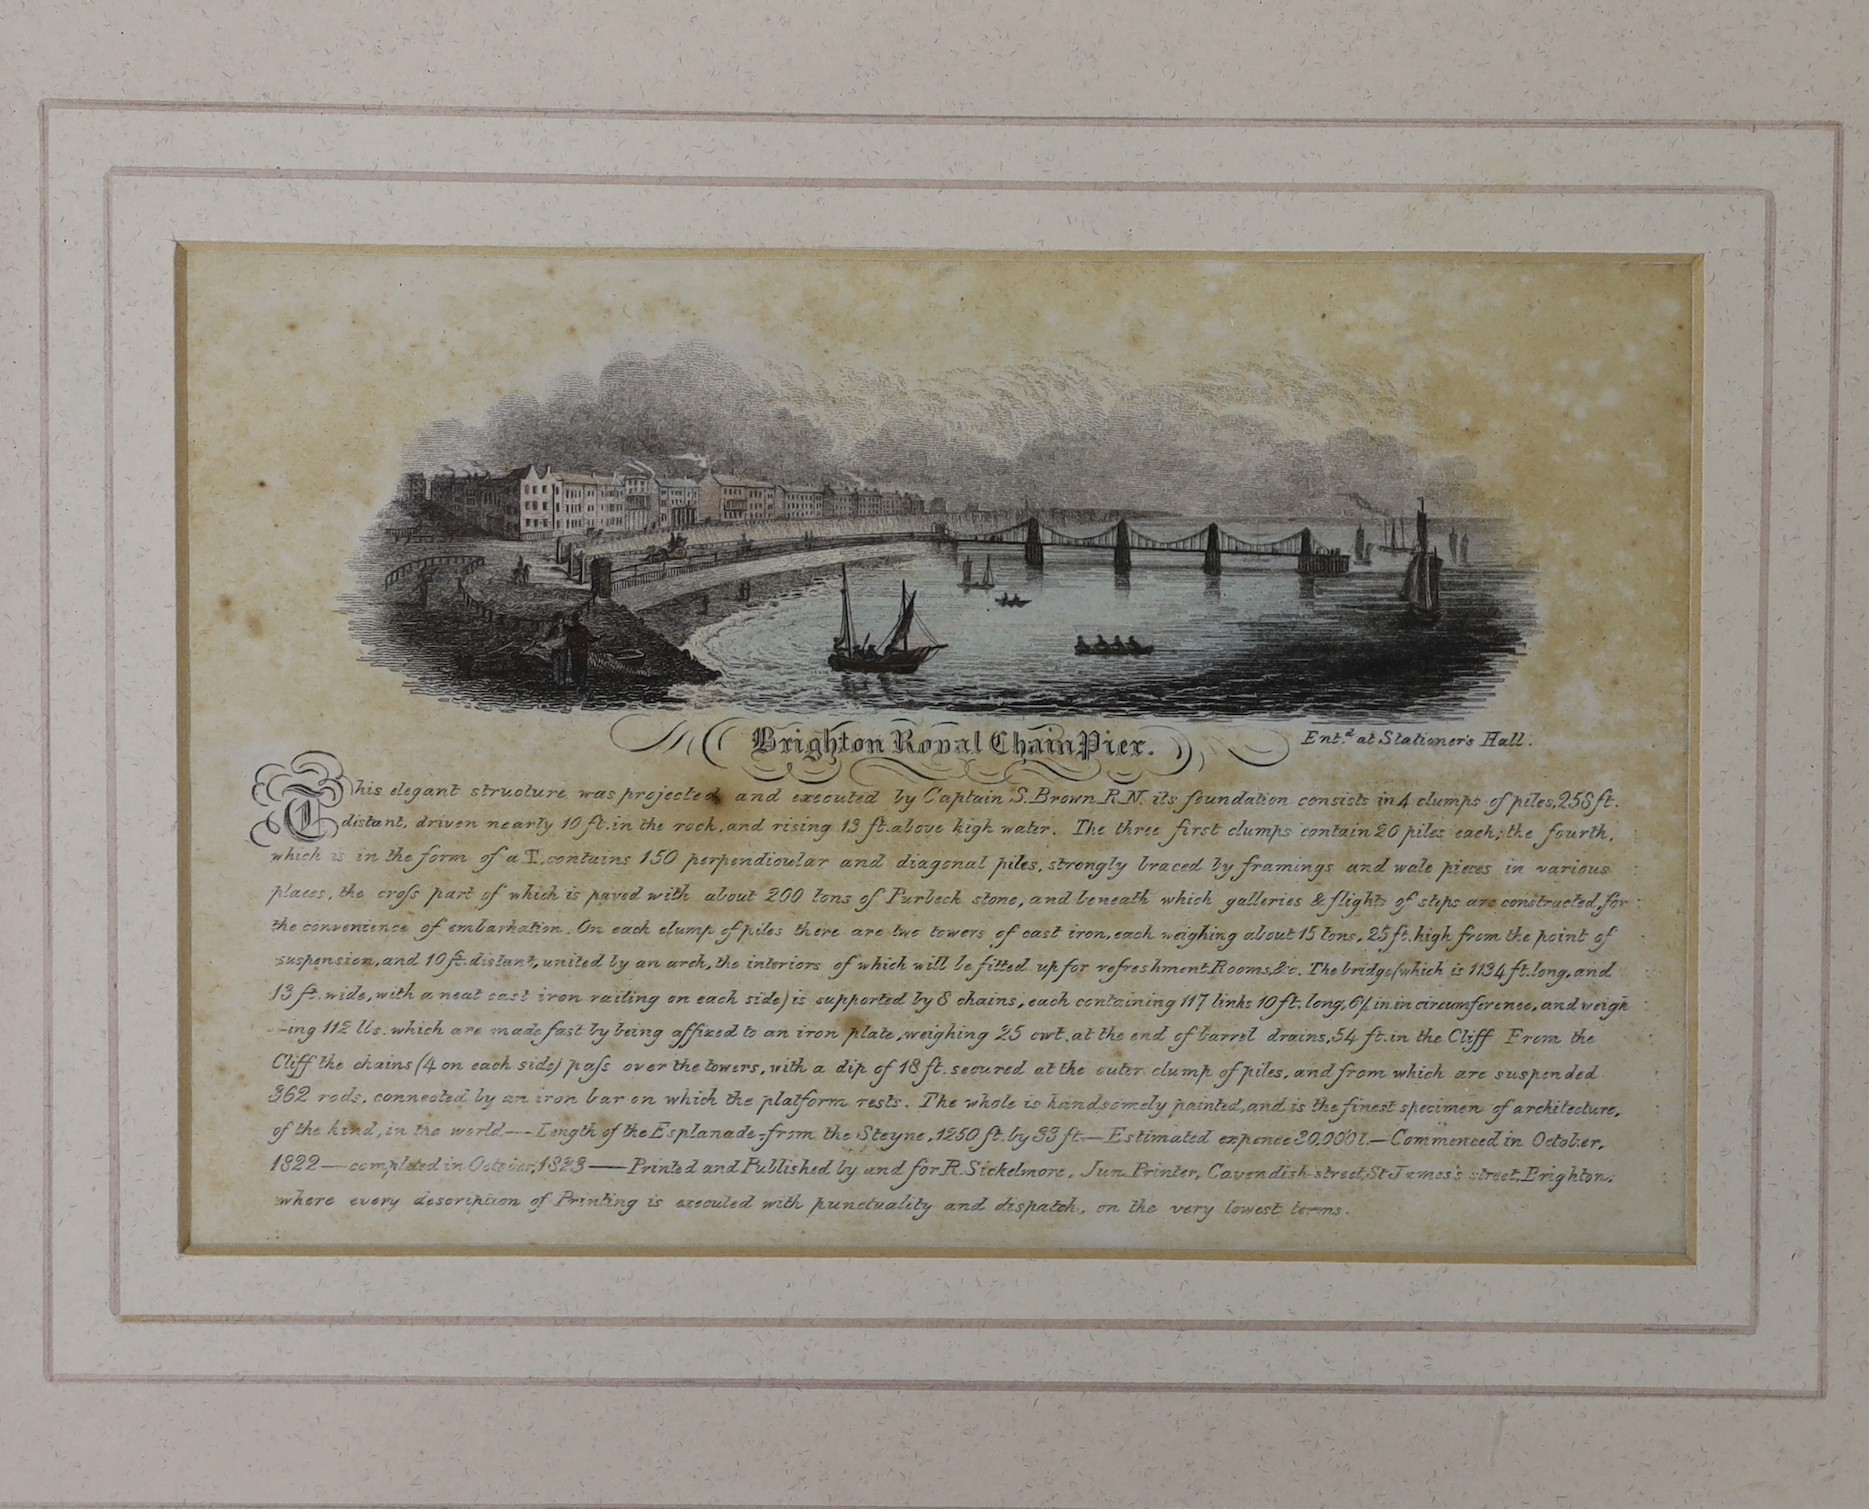 Brighton Royal Chain Pier.
Ent.d at Stationer's Hall.
This elegant structure was projected and executed by Captain S. Brown R.N. its foundation consists in 4 clumps of piles, 258 ft.
distant, driven nearly 10 ft. in the rock, and rising 13 ft. above high water. The three first clumps contain 20 piles each; the fourth,
which is in the form of a T, contains 150 perpendicular and diagonal piles, strongly braced by framings and wale pieces in various
places, the croſs part of which is paved with about 200 tons of Purbeck stone, and beneath which galleries & flights of steps are constructed, for
the convenience of embarkation. On each clump of piles there are two towers of cast iron, each weighing about 15 tons, 25 ft. high from the point of
suspension, and 10 ft. distant, united by an arch, the interiors of which will be fitted up for refreshment Rooms, &c. The bridge (which is 1134 ft. long, and
13 ft. wide, with a neat cast iron railing on each side) is supported by 8 chains, each containing 117 links 10 ft. long, in in circumference, and weigh
-ing 112 lbs. which are made fast by being affixed to an iron plate, weighing 25 cwt. at the end of barrel drains, 54 ft. in the Cliff From the
Cliff the chains (4 on each side) paſs over the towers, with a dip of 18 ft. secured at the outer clump of piles, and from which are suspended
362 rods, connected by an iron bar on which the platform rests. The whole is handsomely painted, and is the finest specimen of architecture,
of the kind, in the world — Length of the Esplanade, from the Steyne, 1250 ft. by 33 ft — Estimated expence 30,000l. — Commenced in October,
1822 — completed in October, 1823 — Printed and Published by and for R. Sickelmore, Jun. Printer, Cavendish-street, St James's street, Brighton,
where every description of Printing is executed with punctuality and dispatch, on the very lowest terms.